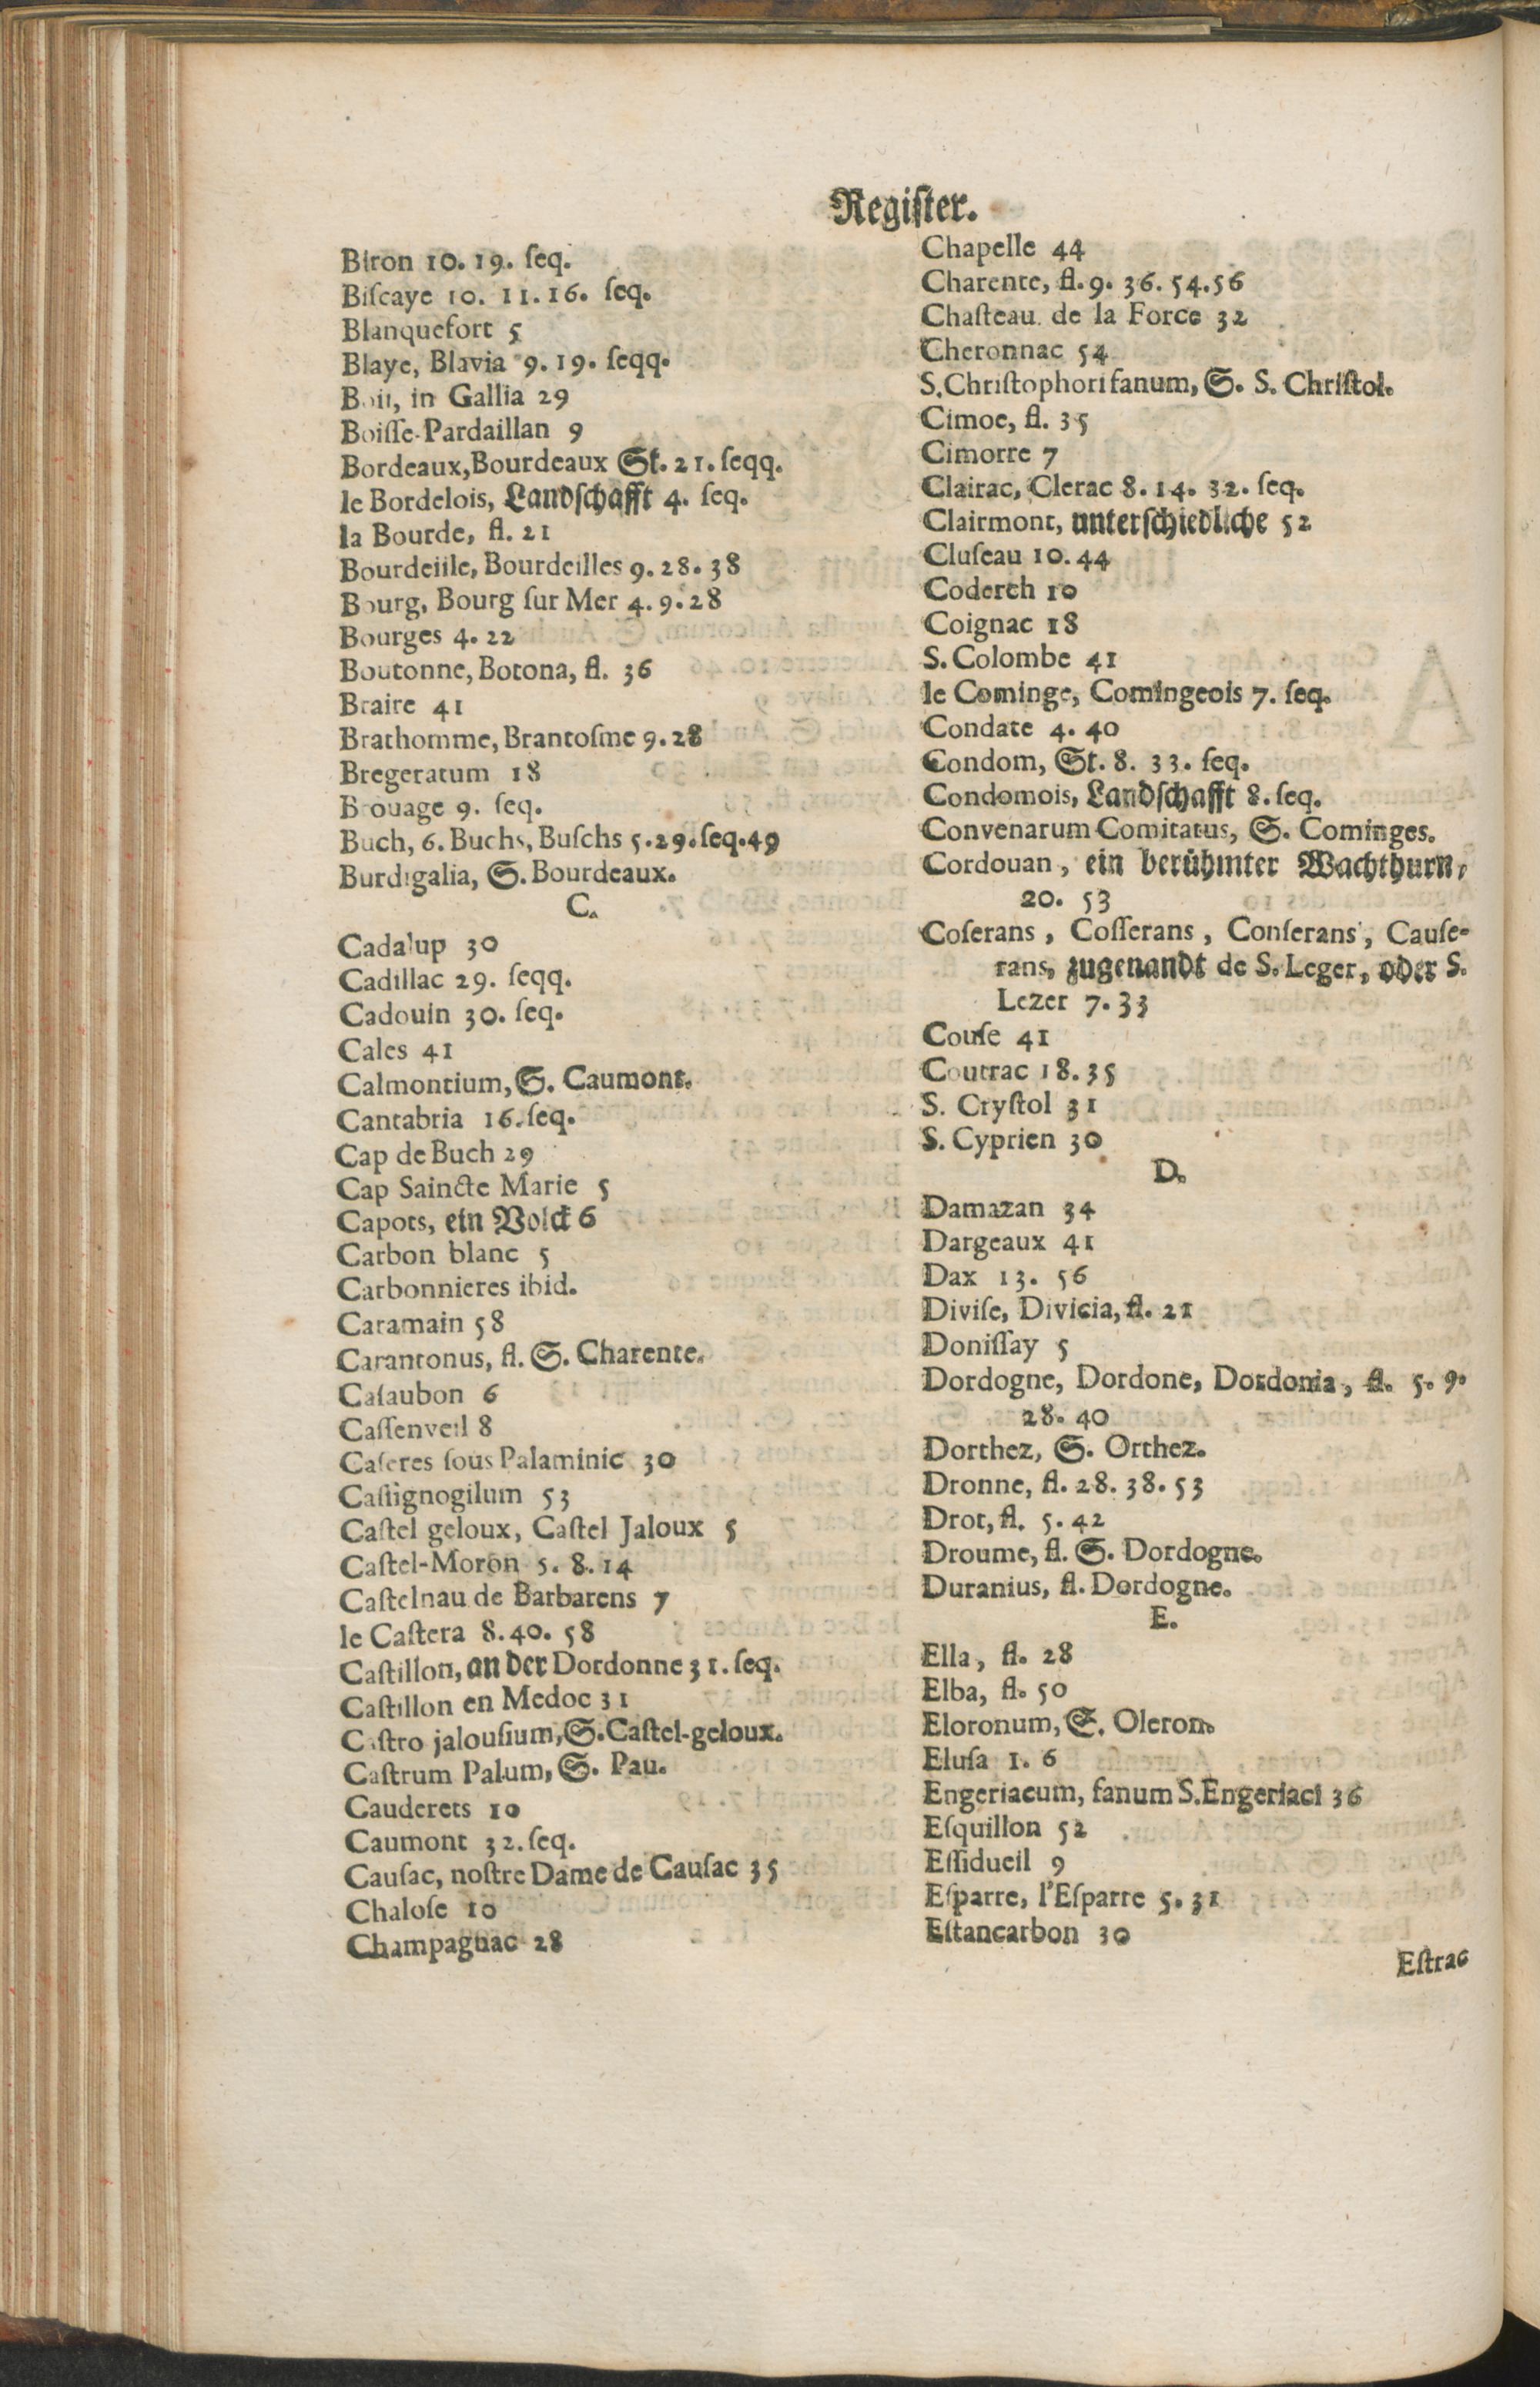 Regiſter.
Biron 10. 19. ſeq.
Biſcaye 10. 11. 16. ſeq.
Blanquefort 5
Blaye, Blavia 9. 19. ſeqq.
Boii, in Gallia 29
Boiſſe-Pardaillan 9
Bordeaux, Bourdeaux St. 21. ſeqq.
le Bordelois, Landſchafft 4. ſeq.
la Bourde, fl. 21
Bourdeiile, Bourdeilles 9. 28. 38
Bourg, Bourg ſur Mer 4. 9. 28
Bourges 4. 22
Boutonne, Botona, fl. 36
Braire 41
Brathomme, Brantoſme 9. 28
Bregeratum 18
Brouage 9. ſeq.
Buch, 6. Buchs, Buſchs 5. 29. ſeq. 49
Burdigalia, S. Bourdeaux.
C.
Cadalup 30
Cadillac 29. ſeqq.
Cadouin 30. ſeq.
Cales 41
Calmontium, S. Caumont.
Cantabria 16. ſeq.
Cap de Buch 29
Cap Saincte Marie 5
Capots, ein Volck 6
Carbon blanc 5
Carbonnieres ibid.
Caramain 58
Carantonus, fl. S. Charente.
Caſaubon 6
Caſſenveil 8
Caſeres ſous Palaminic 30
Caſſignogilum 53
Caſtel geloux, Caſtel Jaloux 5
Caſtel-Moron 5. 8. 14
Caſtelnau de Barbarens 7
le Caſtera 8. 40. 58
Caſtillon, an der Dordonne 31. ſeq.
Caſtillon en Medoc 31
Caſtro jalouſium, S. Caſtel-geloux.
Caſtrum Palum, S. Pau.
Cauderets 10
Caumont 32. ſeq.
Cauſac, noſtre Dame de Cauſac 35
Chaloſe 10
Champagnac 28
Chapelle 44
Charente, fl. 9. 36. 54. 56
Chaſteau de la Force 32
Cheronnac 54
S. Chriſtophori fanum, S. S. Chriſtol.
Cimoe, fl. 35
Cimorre 7
Clairac, Clerac 8. 14. 32. ſeq.
Clairmont, unterſchiedliche 52
Cluſeau 10. 44
Coderch 10
Coignac 18
S. Colombe 41
le Cominge, Comingeois 7. ſeq.
Condate 4. 40
Condom, St. 8. 33. ſeq.
Condomois, Landſchafft 8. ſeq.
Convenarum Comitatus, S. Cominges.
Cordouan, ein berühmter Wachthurn,
20. 53
Coſerans, Coſſerans, Conſerans, Cauſe-
rans, zugenandt de S. Leger, oder S.
Lezer 7. 33
Couſe 41
Coutrac 18. 35
S. Cryſtol 31
S. Cyprien 30
D.
Damazan 34
Dargeaux 41
Dax 13. 56
Diviſe, Divicia, fl. 21
Doniſſay 5
Dordogne, Dordone, Dordonia, fl. 5. 9.
28. 40
Dorthez, S. Orthez.
Dronne, fl. 28. 38. 53
Drot, fl. 5. 42
Droume, fl. S. Dordogne.
Duranius, fl. Dordogne.
E.
Ella, fl. 28
Elba, fl. 50
Eloronum, S. Oleron.
Eluſa 1. 6
Engeriacum, fanum S. Engeriaci 36
Eſquillon 52
Eſſidueil 9
Eſparre, l'Eſparre 5. 31
Eſtancarbon 30
Eſtrac